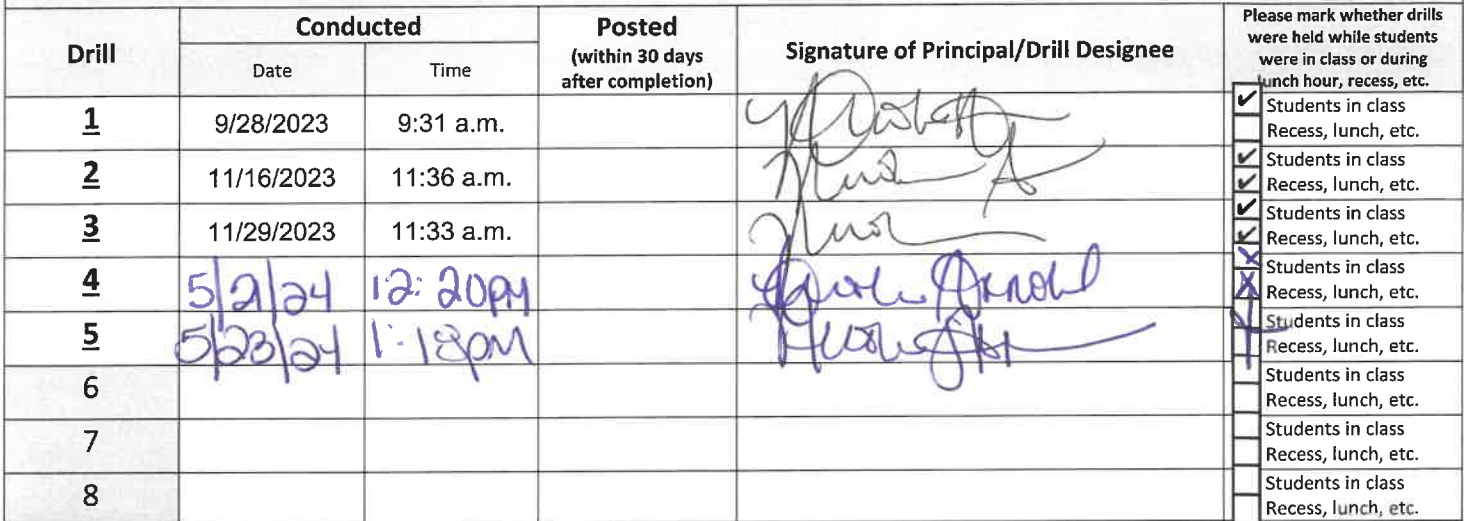 Drill
Conducted
Date
Time
Posted
(within 30 days
after completion)
Signature of Principal/Drill Designee
Please mark whether drills
were held while students
were in class or during
lunch hour, recess, etc.
1 9/28/2023 9:31 a.m. ✔ Students in class
Recess, lunch, etc.
2 11/16/2023 11:36 a.m. ✔ Students in class
✔ Recess, lunch, etc.
3 11/29/2023 11:33 a.m. ✔ Students in class
✔ Recess, lunch, etc.
4 5/2/24 12:20PM Arnold X Students in class
X Recess, lunch, etc.
5 5/23/24 1:18PM Students in class
Recess, lunch, etc.
6 Students in class
Recess, lunch, etc.
7 Students in class
Recess, lunch, etc.
8 Students in class
Recess, lunch, etc.